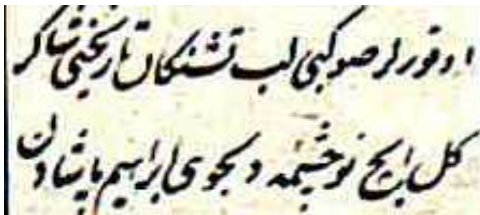 اوقورلر صو کبی لب تشنکان تاریخنی شاکر
کل آب ایچ نو چشمه دلجوی ابراهیم پاشادن